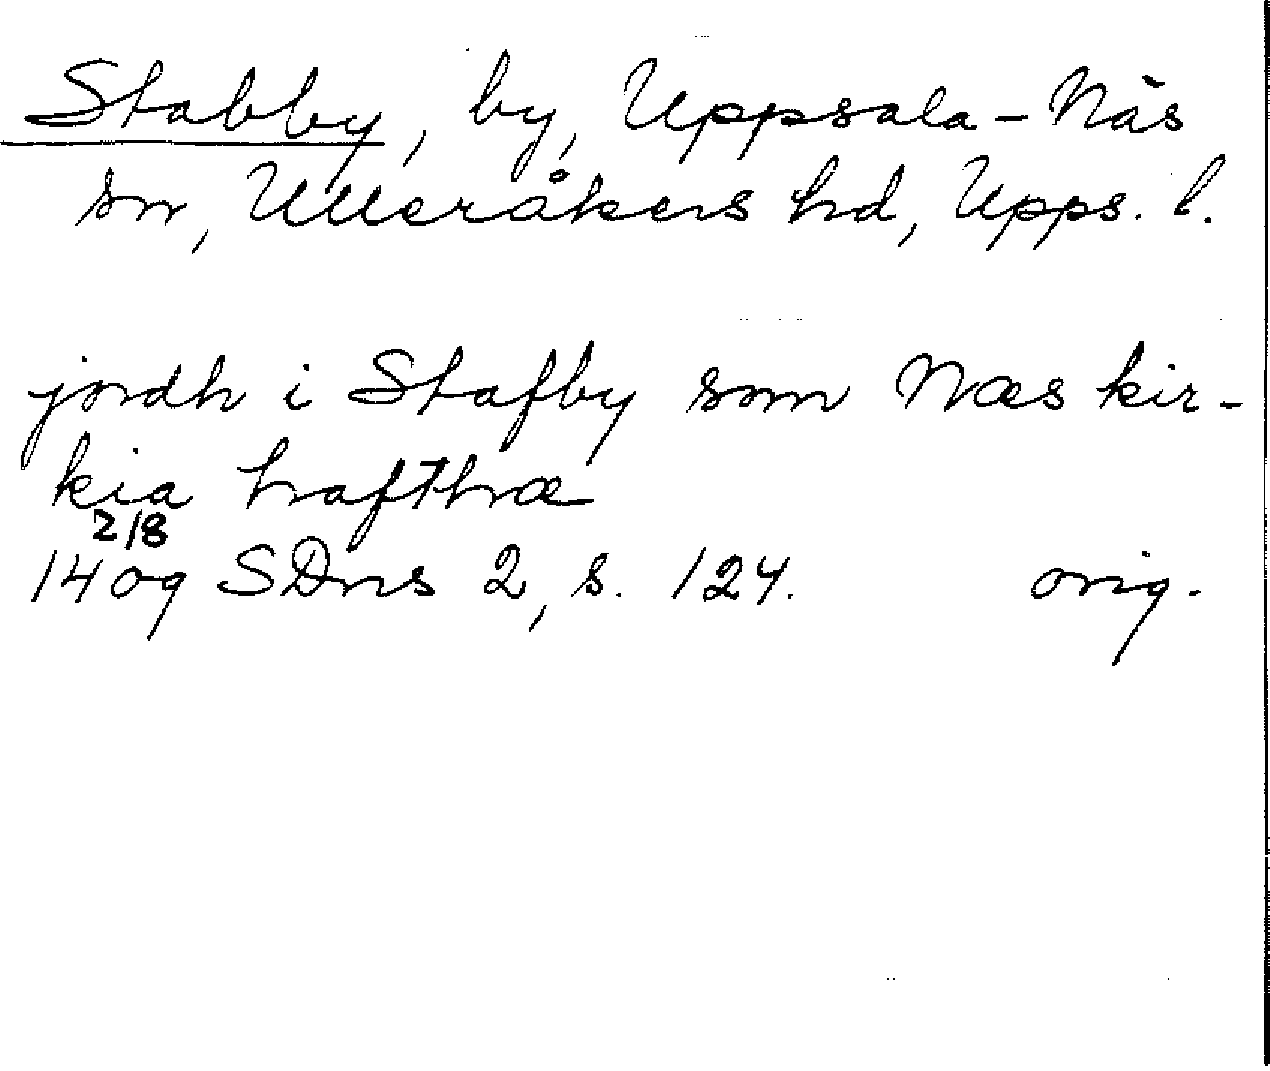 Stabby, by, Uppsala-Näs
sn, Ulleråkers hd, Upps. l.
jordh i Stafby som Næs kir-
kia hafthæ
2/8
1409 SDns 2, s. 124. orig.